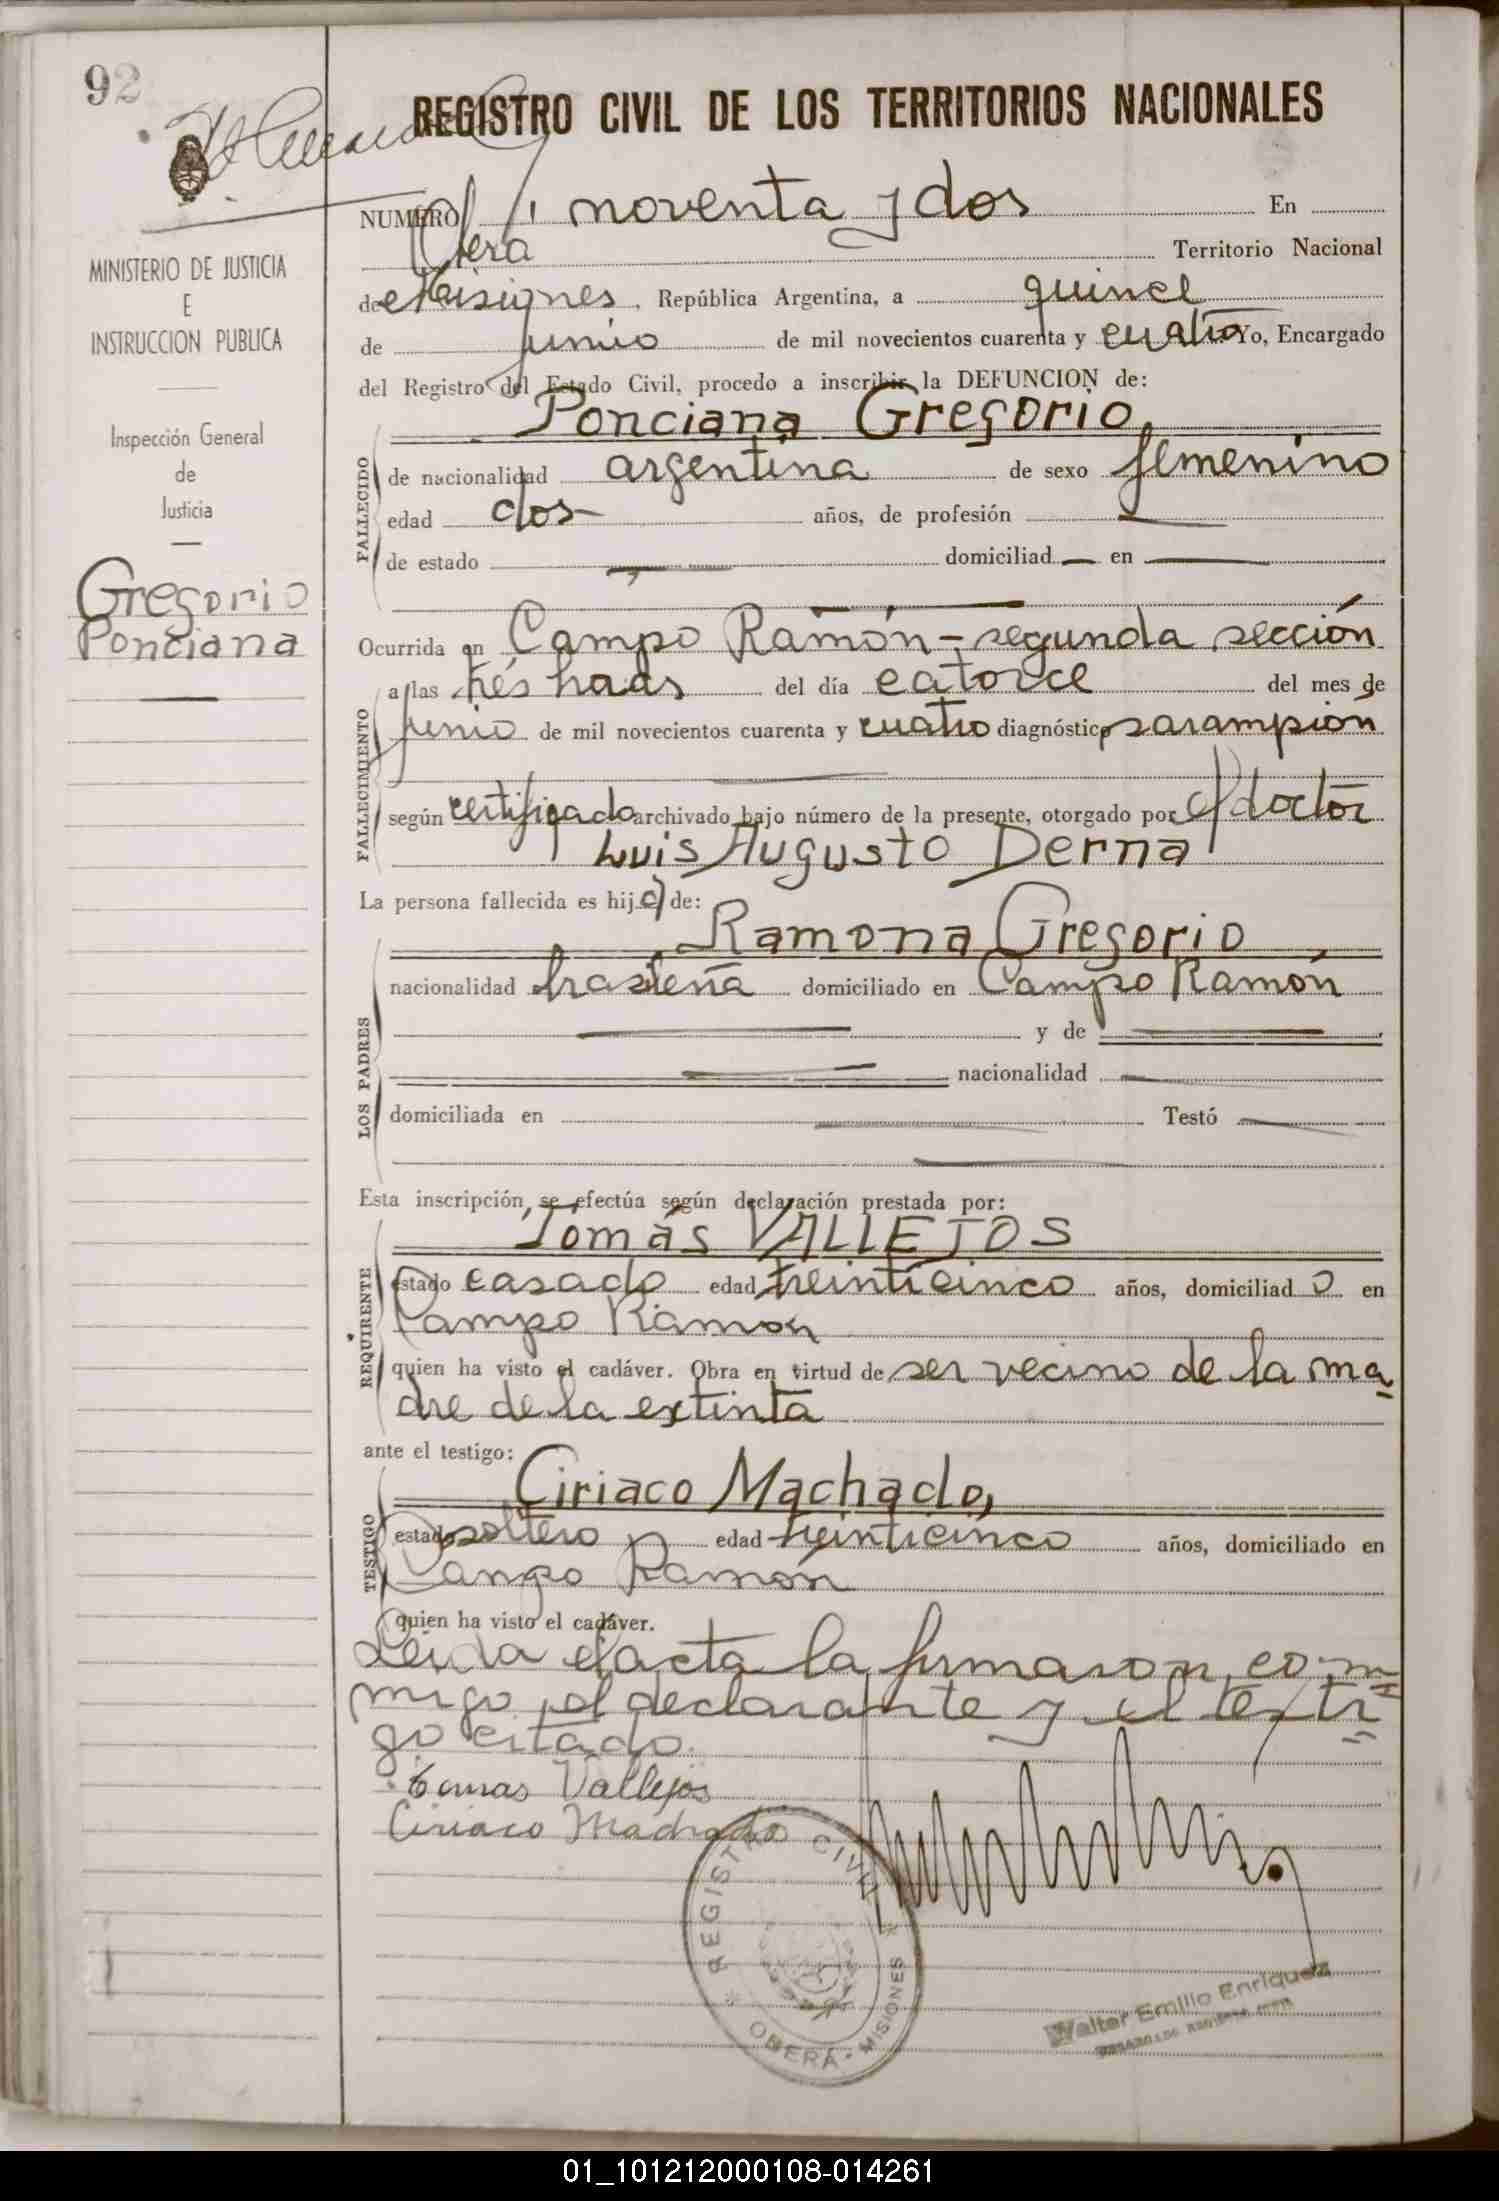 92
REGISTRO CIVIL DE LOS TERRITORIOS NACIONALES
MINISTERIO DE JUSTICIA
E
INSTRUCCION PUBLICA
Inspección General
de
Justicia
Gregorio
Ponciana
NUMERO noventa y dos En
Oberá Territorio Nacional
de Misiones, República Argentina, a quince
de junio de mil novecientos cuarenta y cuatro Yo, Encargado
del Registro del Estado Civil, procedo a inscribir la DEFUNCION de:
Ponciana Gregorio,
FALLECIDO
de nacionalidad argentina de sexo femenino
edad dos años, de profesión —
de estado — domiciliad — en —
Ocurrida en Campo Ramón - segunda sección
FALLECIMIENTO
a las tres horas del día catorce del mes de
junio de mil novecientos cuarenta y cuatro diagnóstico sarampión
según certificado archivado bajo número de la presente, otorgado por el doctor
Luis Augusto Derna
La persona fallecida es hija de:
LOS PADRES
Ramona Gregorio,
nacionalidad brasileña domiciliado en Campo Ramón
— y de —
— nacionalidad —
domiciliada en — Testó —
Esta inscripción, se efectúa según declaración prestada por:
REQUIRENTE
Tomás VALLEJOS
estado casado edad treinticinco años, domiciliado en
Campo Ramon
quien ha visto el cadáver. Obra en virtud de ser vecino de la ma-
dre de la extinta
ante el testigo:
TESTIGO
Ciriaco Machado,
estado soltero edad veinticinco años, domiciliado en
Campo Ramón
quien ha visto el cadáver.
Leida el acta la firmaron con-
migo, el declarante y el testi-
go citado.
tomas Vallejos
Ciriaco Machado
REGISTRO CIVIL
OBERÁ - MISIONES
Walter Emilio Enriquez
ENCARGADO REGISTRO CIVIL
01_101212000108-014261